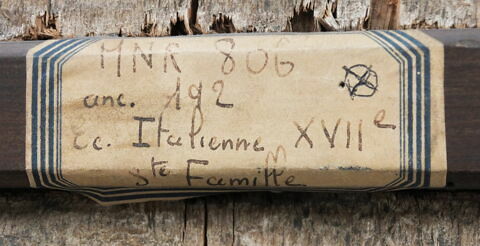 MNR 806
anc. 192
Ec. Italienne XVIIe
Ste Famille